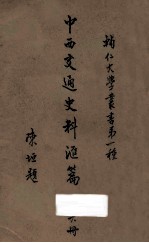 輔仁大學叢書第一種
中西交通史料匯篇
六冊
陳垣題